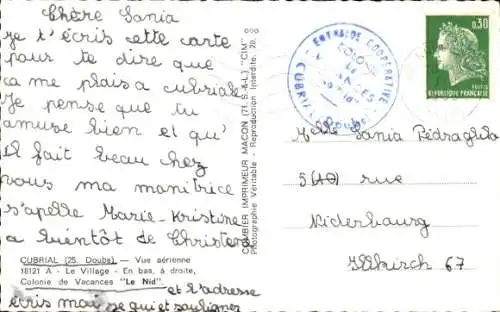 Chère Sonia
je t'écris cette carte
pour te dire que
ça me plais a cubrial
Je pense que tu
amuse bien et qu'
il fait beau chez
vous ma monitrice
s'apelle Marie-Kristine
a bientôt de Christera
CUBRIAL (25. Doubs) — Vue aérienne
18121 A - Le Village - En bas, à droite,
Colonie de Vacances "Le Nid"
et l'adresse
écris moi se qui et souligner
COMBIER IMPRIMEUR MACON (71. S.-&-L.) "CIM"
Photographie Véritable - Reproduction Interdite.
ENTRAIDE COOPERATIVE
COLONIE
CUBRIAL (Doubs)
0,30
POSTES
REPUBLIQUE FRANÇAISE
Melle Sonia
5 rue
Niderbourg
Illkirch 67